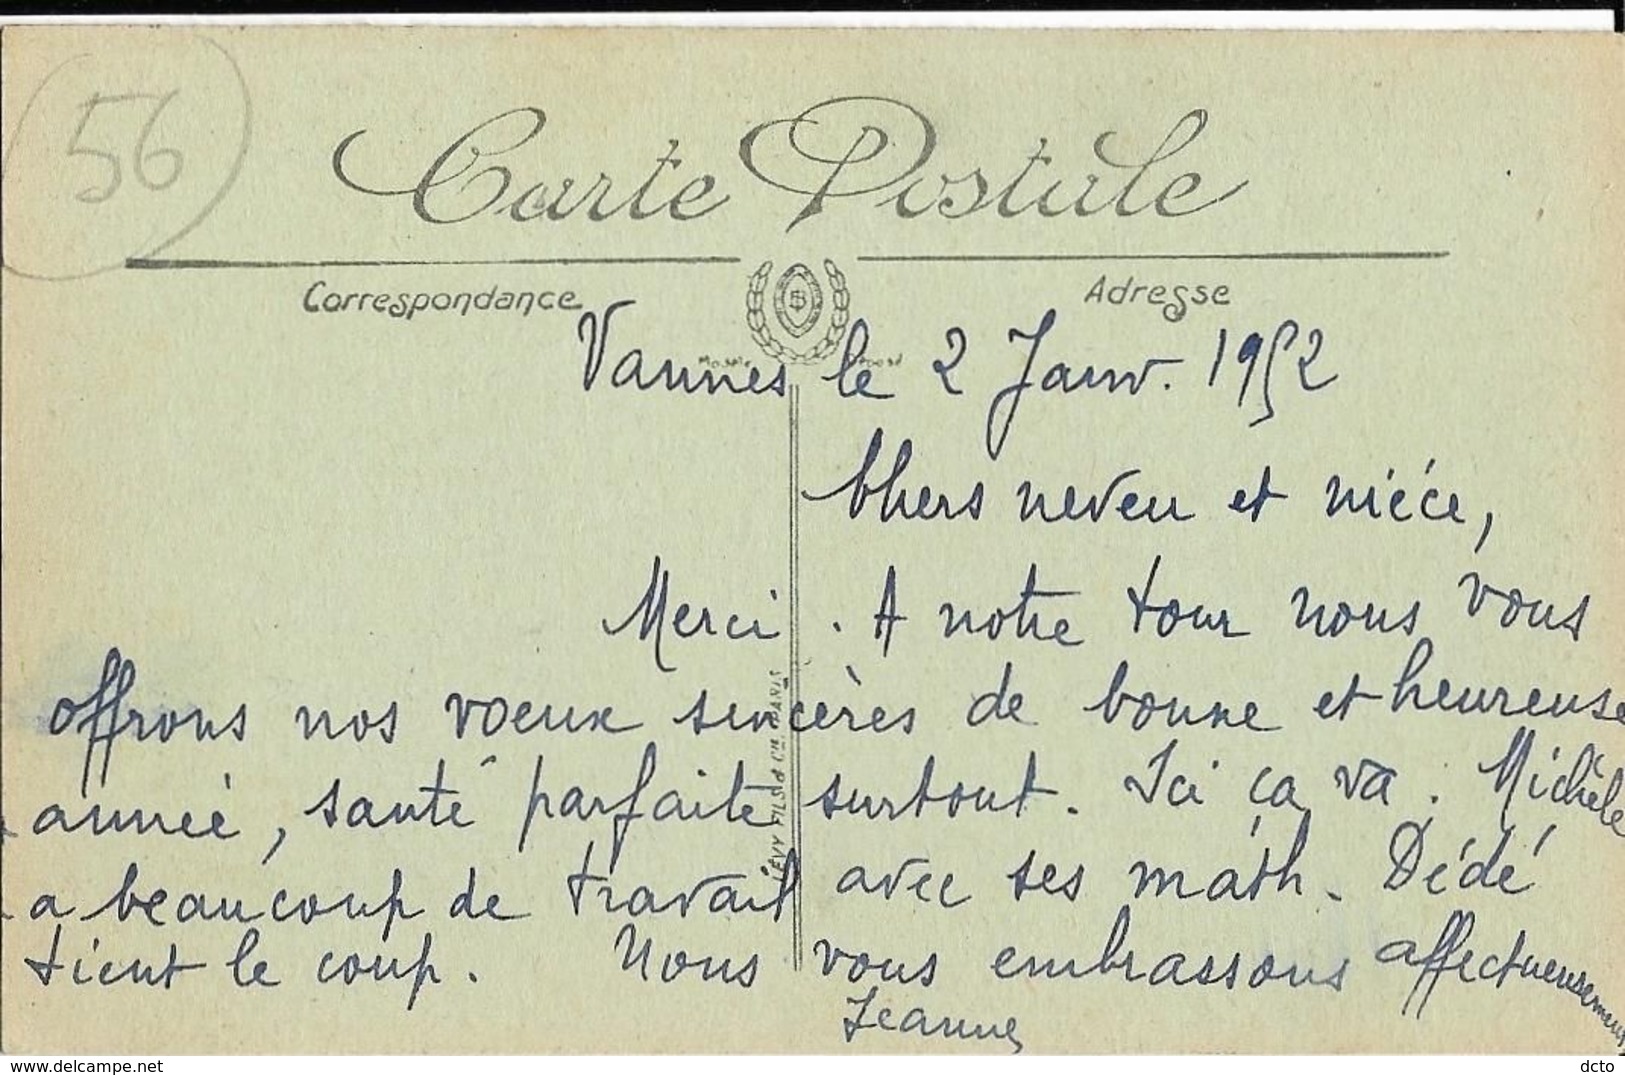 56
Carte Postale
Correspondance
Adresse
Vannes le 2 Janv. 1952
Chers neveu et niéce,
Merci. A notre tour nous vous
offrons nos voeux sincères de bonne et heureuse
année, santé parfaite surtout. Ici ça va. Michèle
a beaucoup de travail avec ses math. Dédé
tient le coup. Nous vous embrassons affectueusement
Jeanne
LÉVY FILS & Cie PARIS
dcto